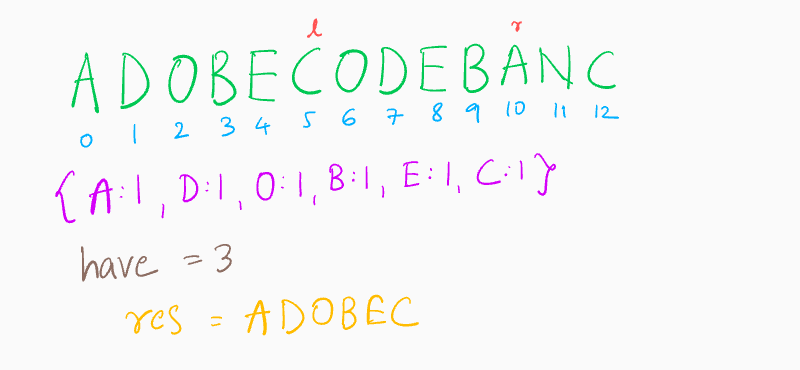 l r
ADOBECODEBANC
0 1 2 3 4 5 6 7 8 9 10 11 12
{A:1, D:1, O:1, B:1, E:1, C:1}
have = 3
res = ADOBEC